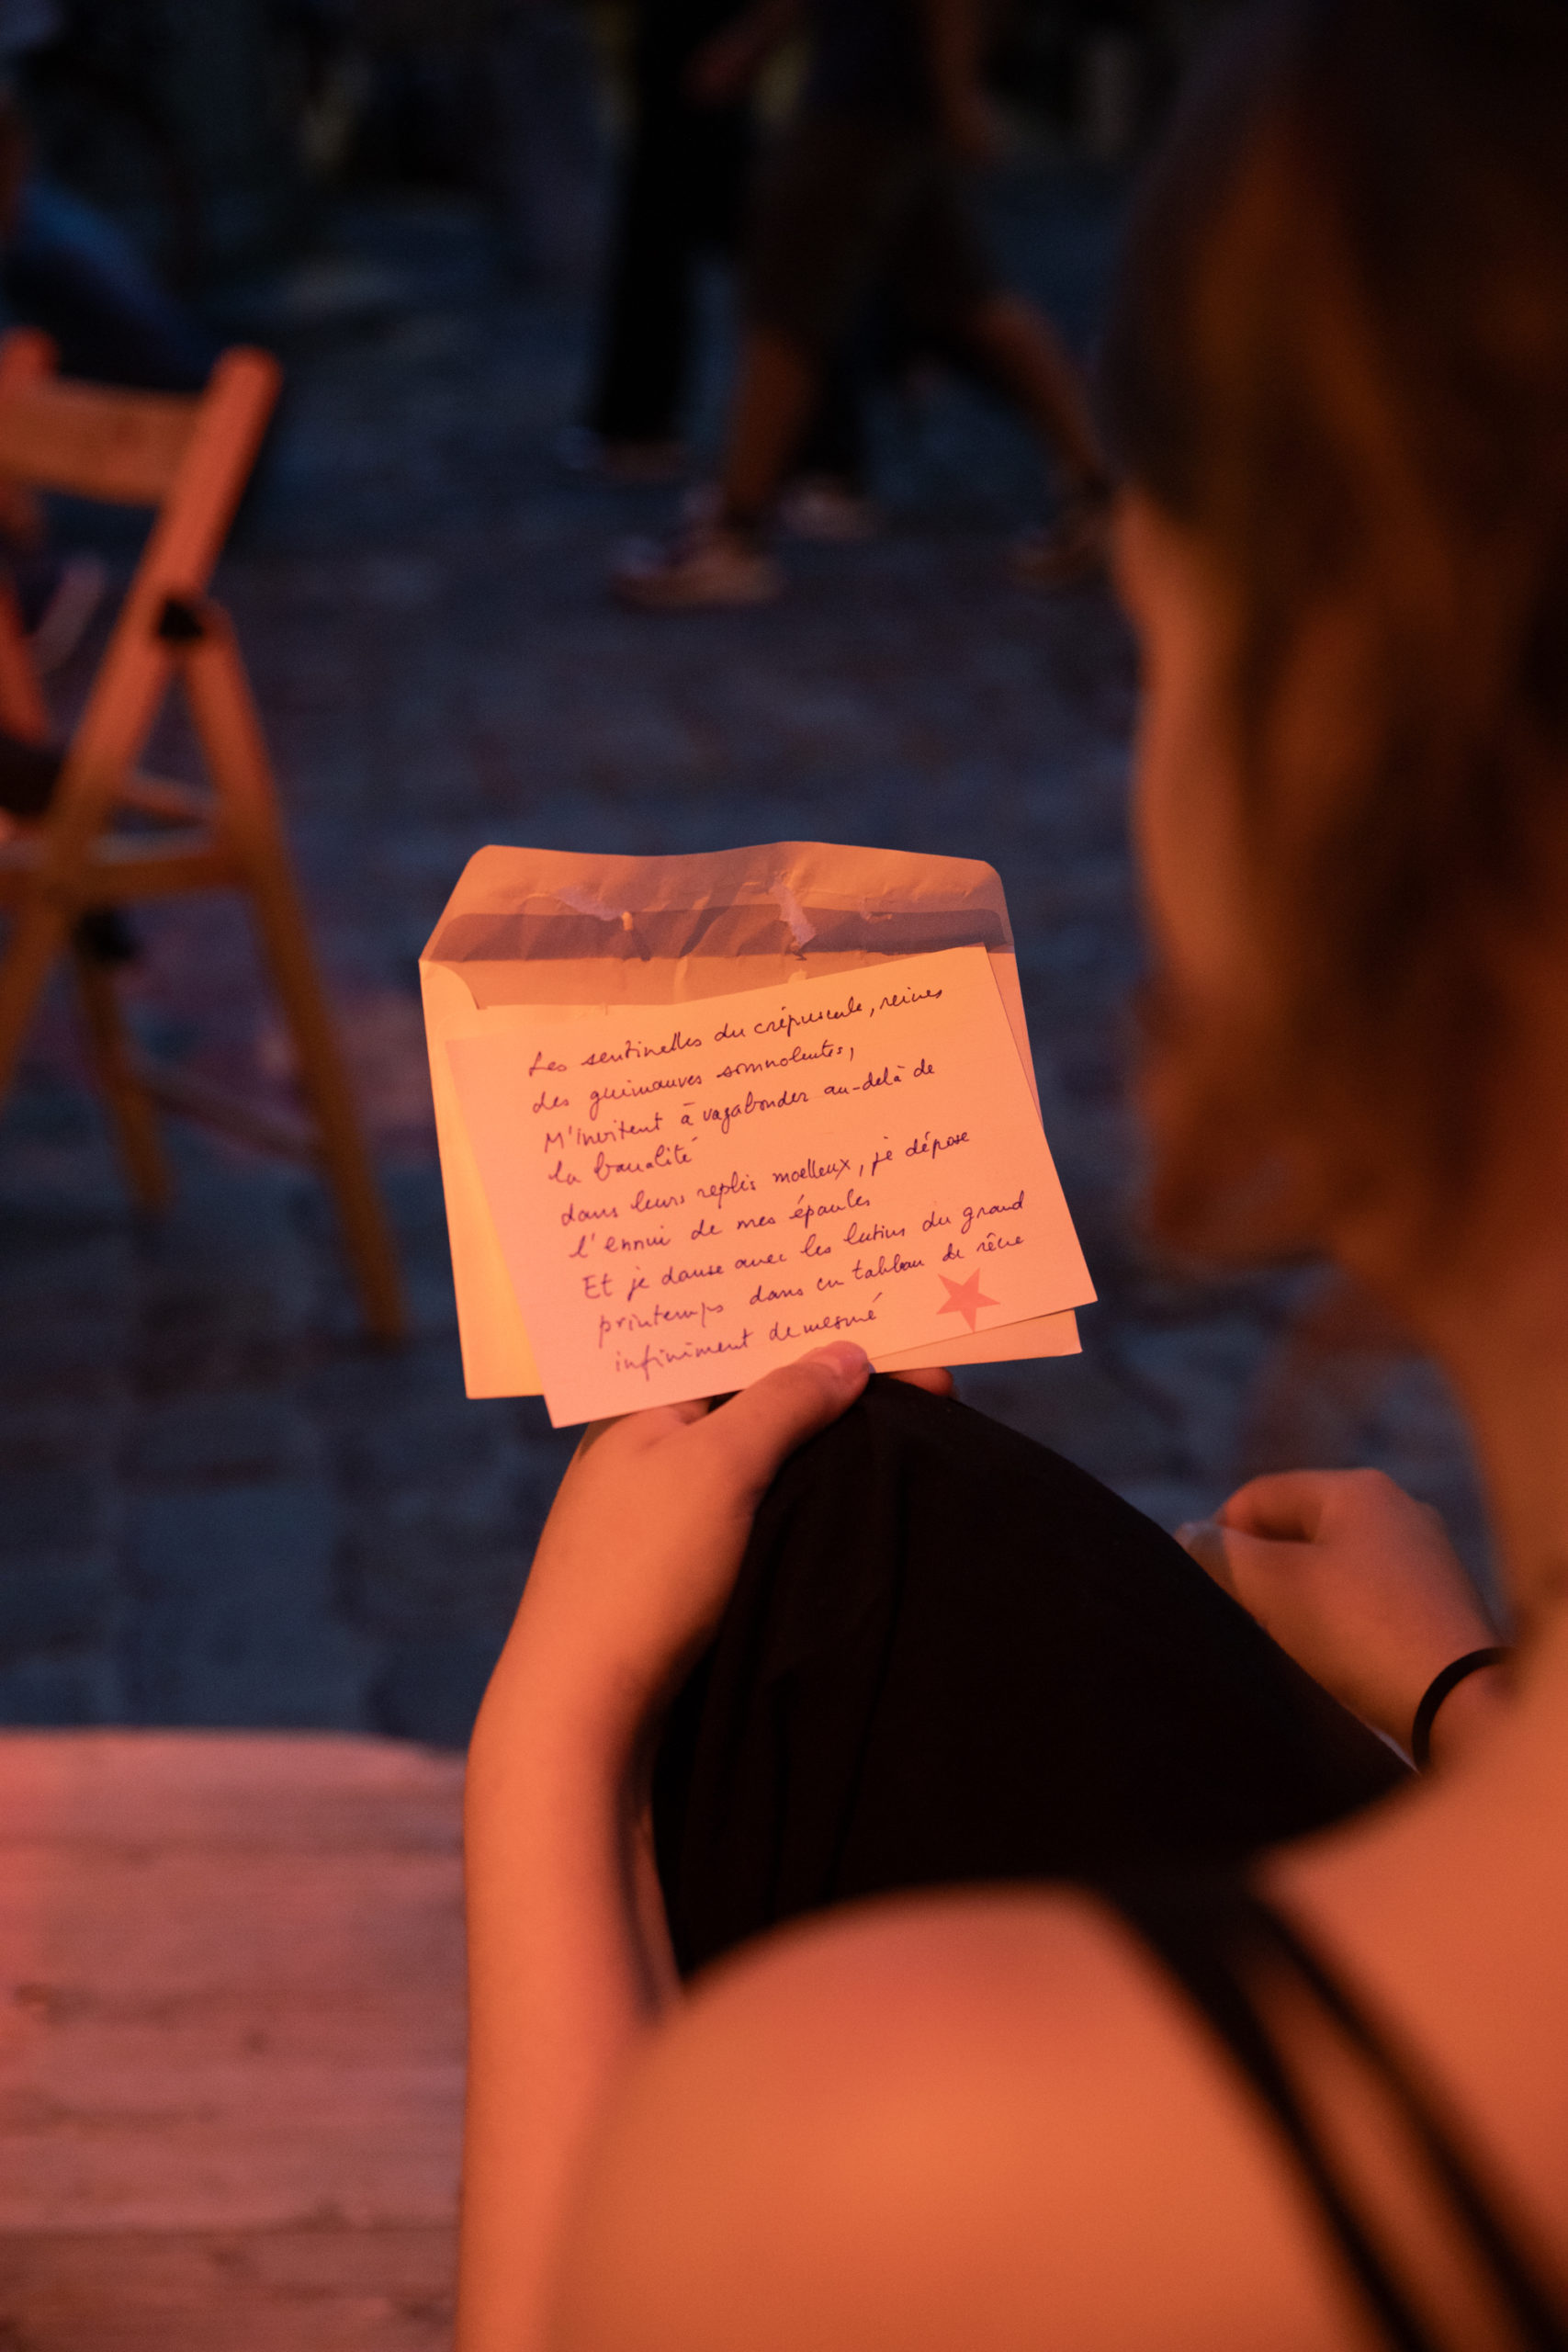 Les sentinelles du crépuscule, reines
des guimauves somnolentes,
M'invitent à vagabonder au-delà de
la banalité
dans leurs replis moelleux, je dépose
l'ennui de mes épaules
Et je danse avec les lutins du grand
printemps dans un tableau de rêve
infiniment demesuré